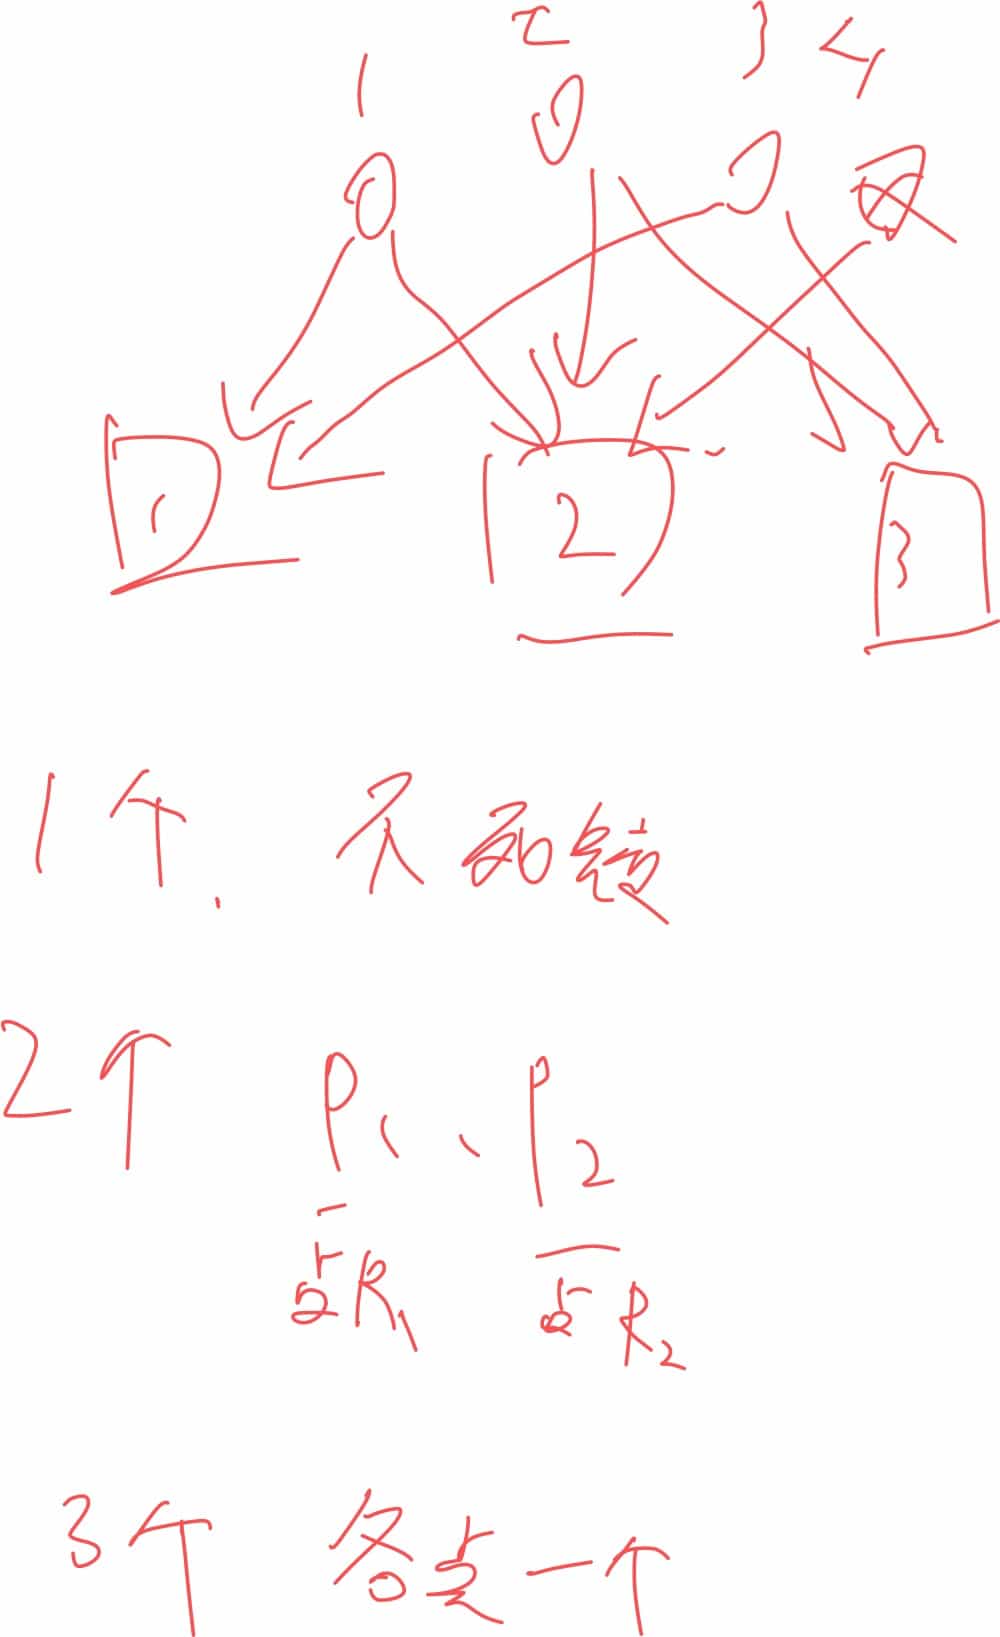 1 2 3 4
1 2 3
1个. 不死锁
2个 P1、P2
占R1 占R2
3个 各占一个